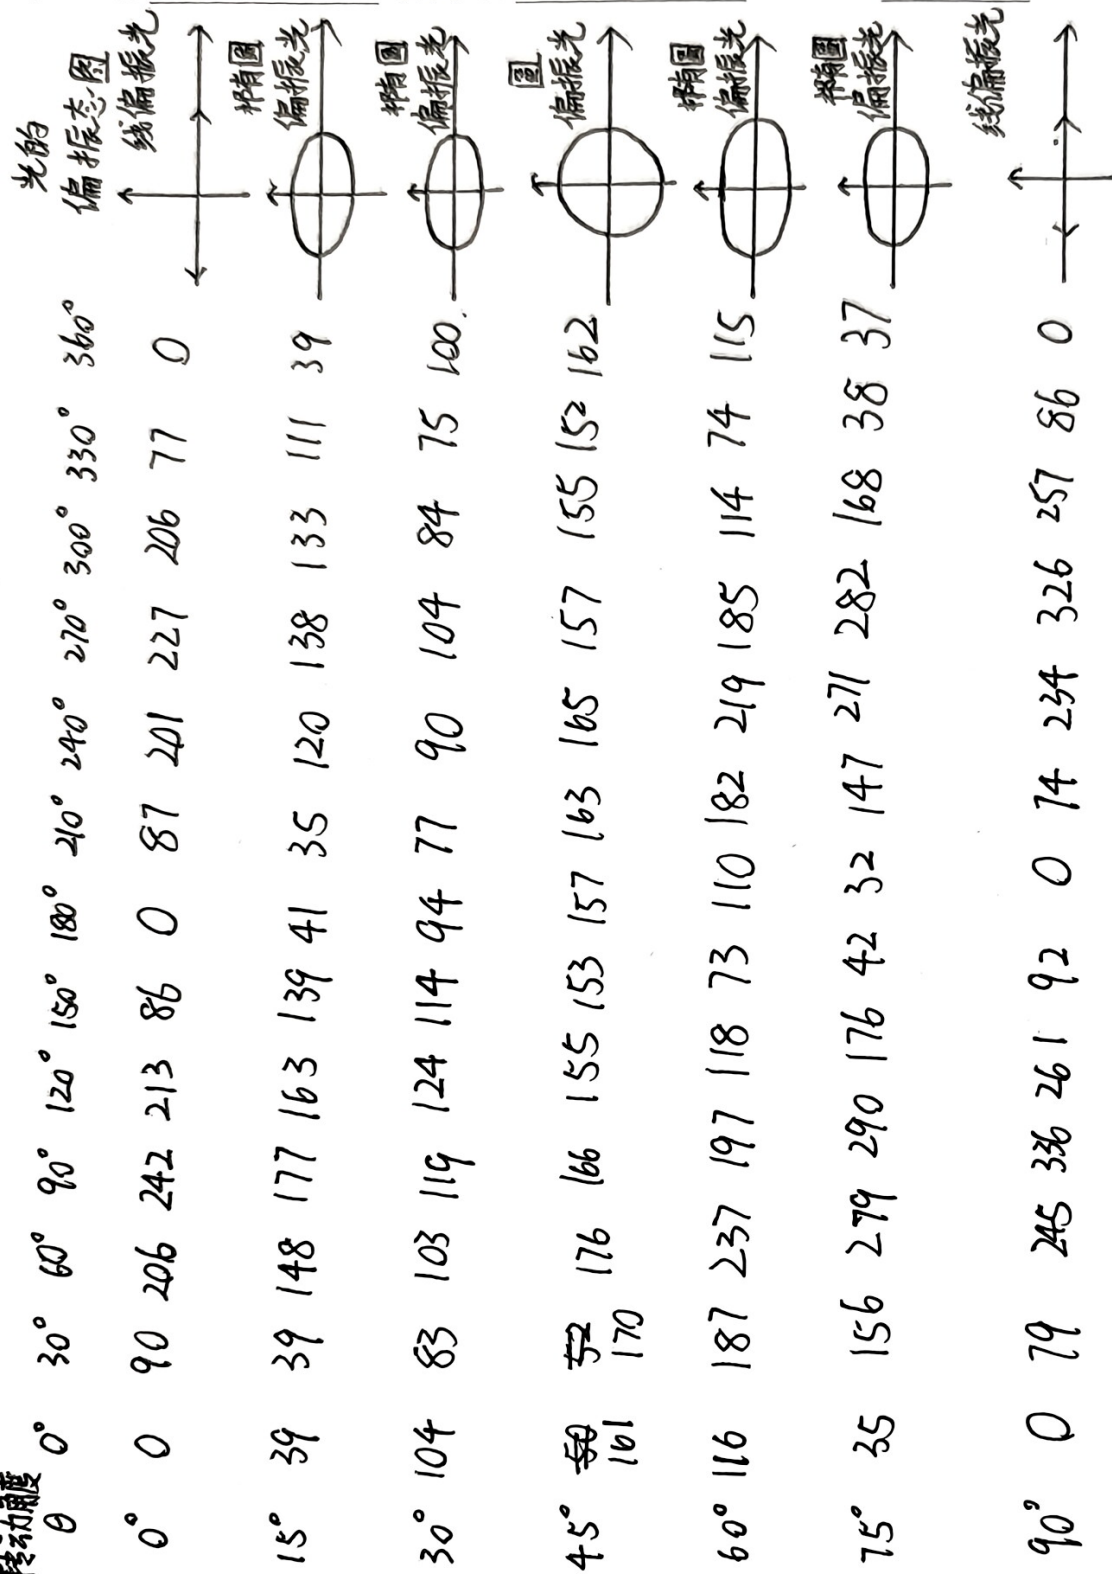 转动角度
θ 0° 30° 60° 90° 120° 150° 180° 210° 240° 270° 300° 330° 360° 光的
偏振态图
0° 0 90 206 242 213 86 0 87 201 227 206 77 0 线偏振光
15° 39 39 148 177 163 139 41 35 120 138 133 111 39 椭圆
偏振光
30° 104 83 103 119 124 114 94 77 90 104 84 75 100. 椭圆
偏振光
45° 50 52 176 166 155 153 157 163 165 157 155 152 162 圆
偏振光
161 170
60° 116 187 237 197 118 73 110 182 219 185 114 74 115 椭圆
偏振光
75° 35 156 279 290 176 42 32 147 271 282 168 38 37 椭圆
偏振光
90° 0 79 245 336 261 92 0 74 234 326 257 86 0 线偏振光